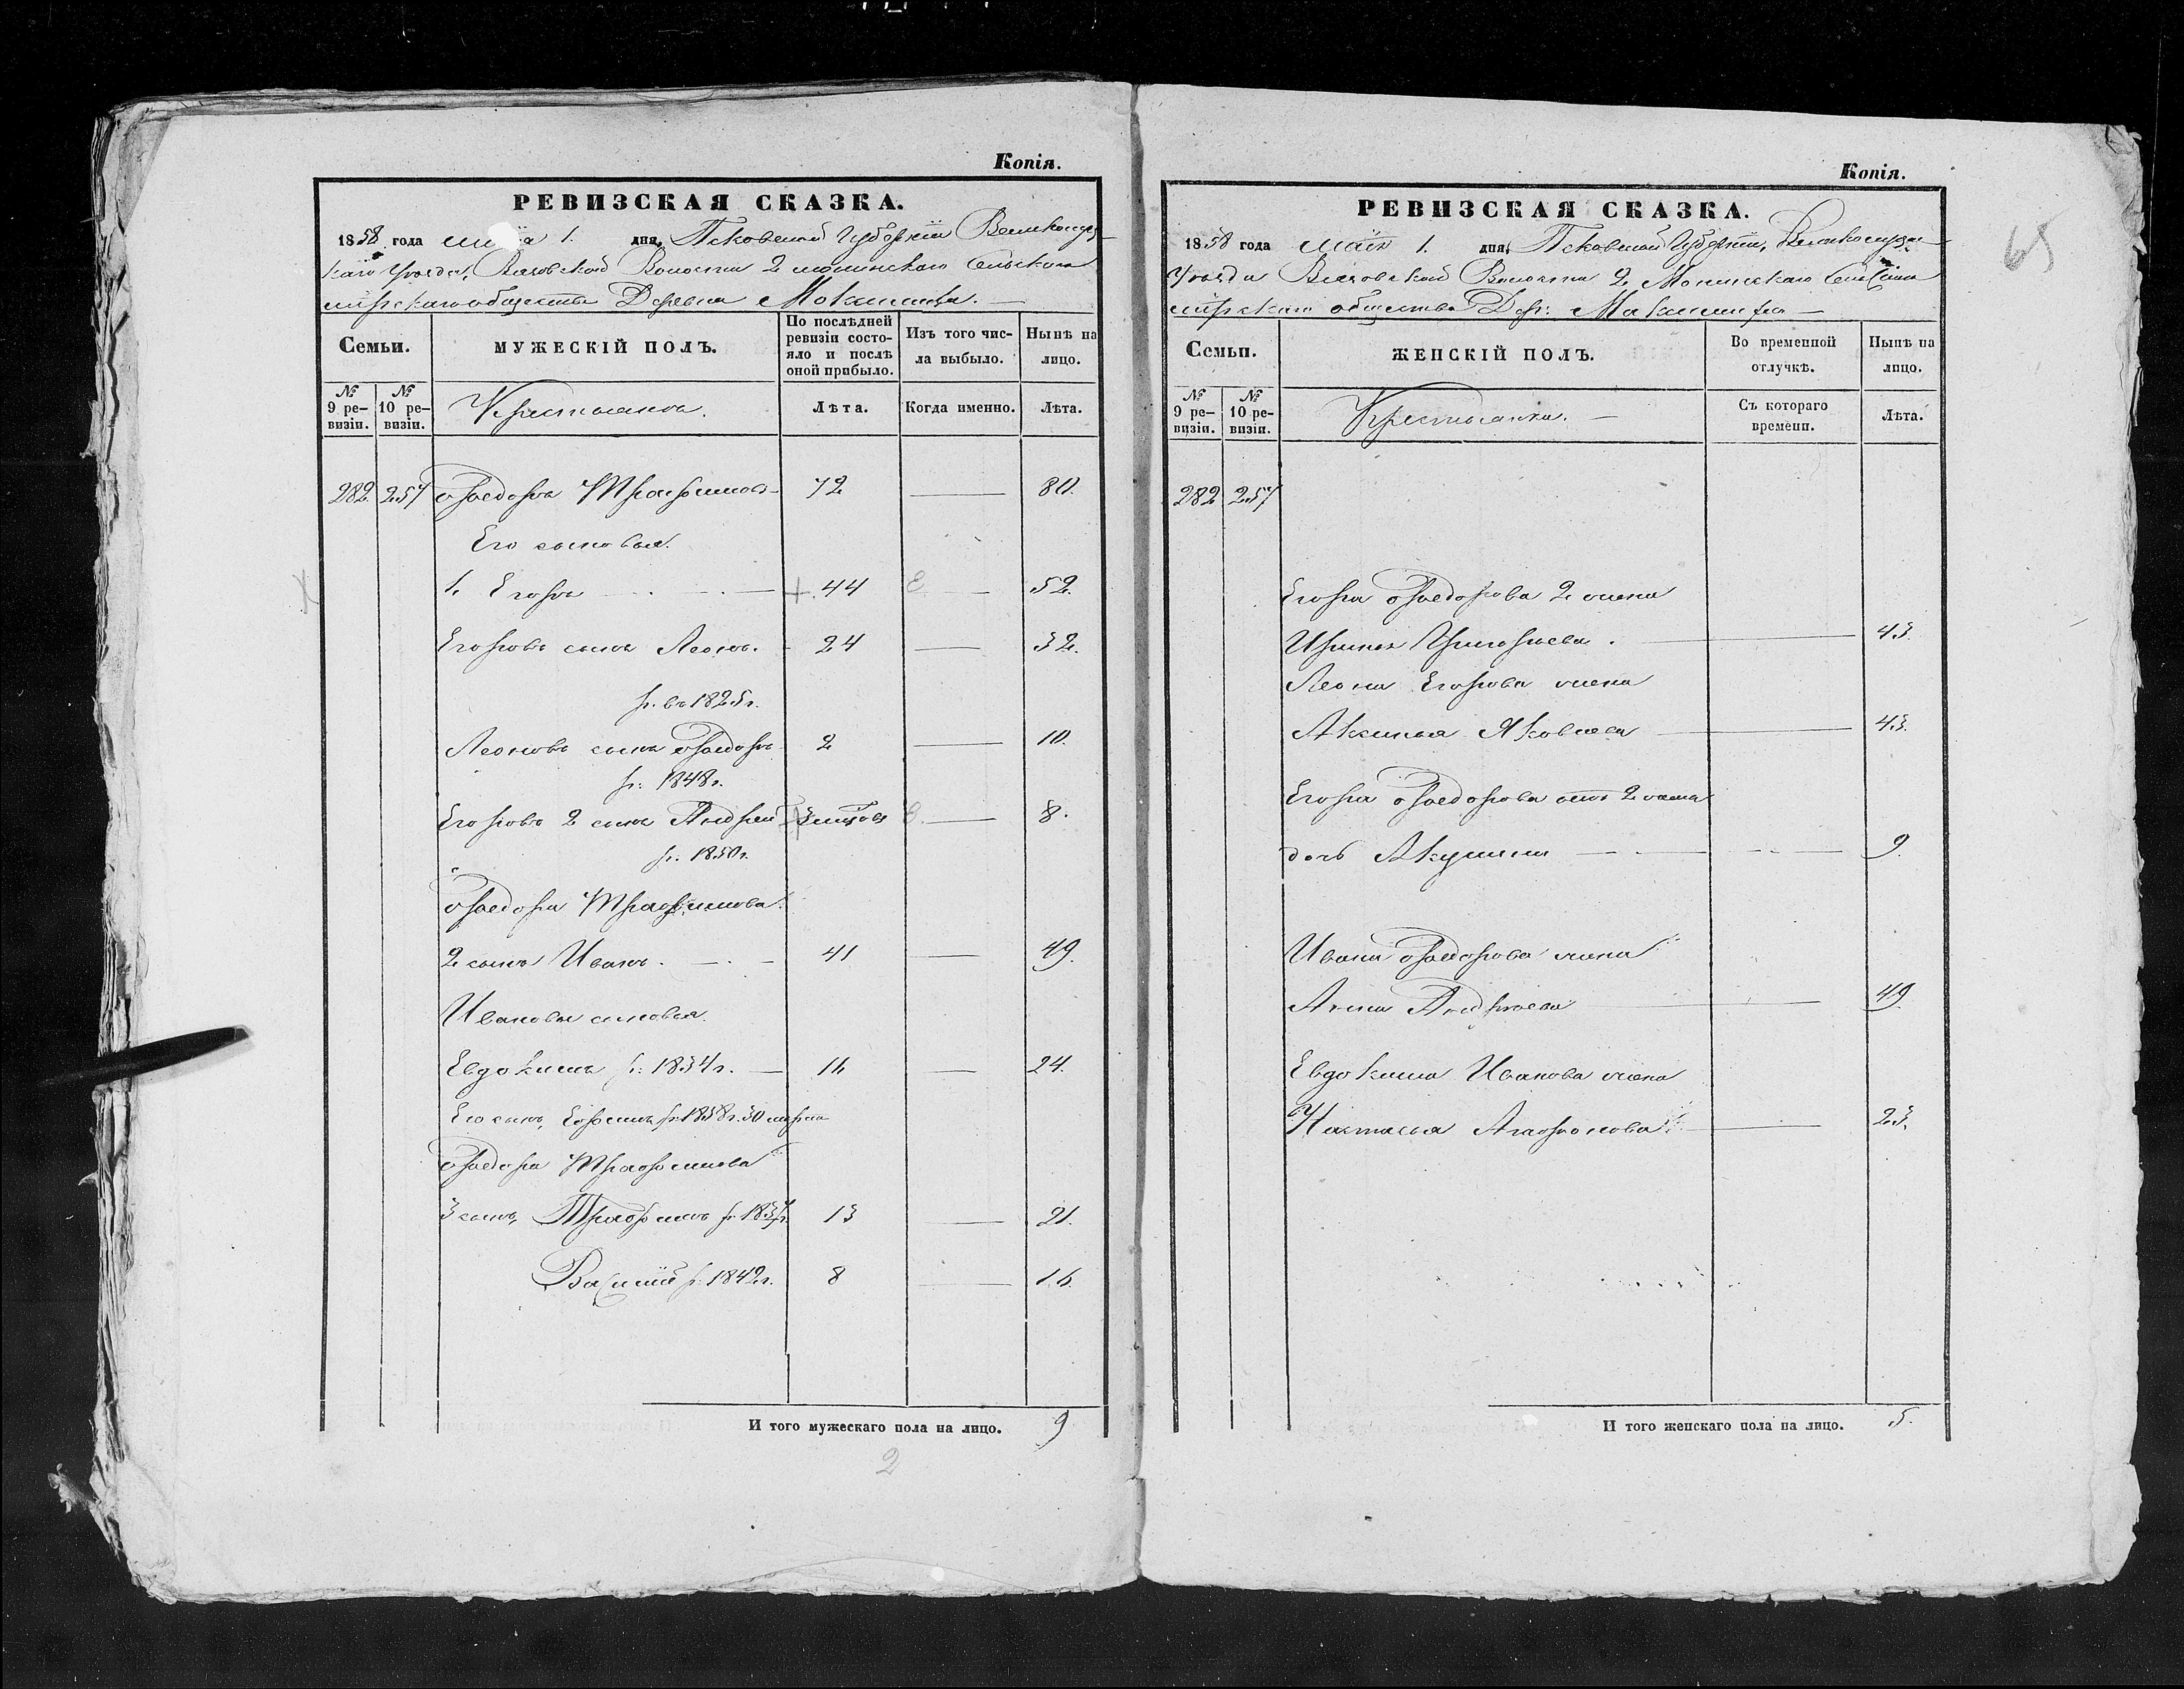 Копія.
РЕВИЗСКАЯ СКАЗКА.
1858 года мая 1. дня, Псковской Губерніи Великолуц-
каго Уѣзда, Вязовской Волости 2 Монинскаго сельскаго
мірскаго общества Деревня Мокшина.
Семьи.
МУЖЕСКІЙ ПОЛЪ.
По послѣдней ревизіи состояло и послѣ оной прибыло.
Изъ того числа выбыло.
Нынѣ на лицо.
№ 9 ревизіи.
№ 10 ревизіи.
Крестьяне.
Лѣта.
Когда именно.
Лѣта.
282 257 Ѳедоръ Трофимовъ 72 — 80.
Его сыновья.
1. Егоръ 44 — 52.
Егоровъ сынъ Леонъ. 24 — 32.
р. въ 1825 г.
Леоновъ сынъ Ѳедоръ 2 — 10.
р: 1848 г.
Егоровъ 2 сынъ Андрей — 8.
р: 1850 г.
Ѳедора Трофимова
2 сынъ Иванъ. 41 — 49.
Ивановы сыновья.
Евдокимъ р: 1834 г. — 16 — 24.
Его сынъ, Ефимъ р: 1858 г. 30 марта
Ѳедора Трофимова
3 сынъ, Трофимъ р. 1837 г. 13 — 21.
Василій р. 1842 г. 8 — 16.
И того мужескаго пола на лицо. 9
2
65
Копія.
РЕВИЗСКАЯ СКАЗКА.
1858 года мая 1. дня, Псковской Губерніи, Великолуцк.
Уѣзда Вязовской Волости 2 Монинскаго
мірскаго общества Дер:
Семьи.
ЖЕНСКІЙ ПОЛЪ.
Во временной отлучкѣ.
Нынѣ на лицо.
№ 9 ревизіи.
№ 10 ревизіи.
Крестьянки.
Съ котораго времени.
Лѣта.
282 257
Егора Ѳедорова 2 жена
Ирина Григорьева. 43.
Леона Егорова жена
Аксинья Яковлева 43.
Егора Ѳедорова отъ 2 жены
дочь Акулина 9.
Ивана Ѳедорова жена
Анна Андреева 49.
Евдокима Иванова жена
Настасья Агафонова 23.
И того женскаго пола на лицо. 5.